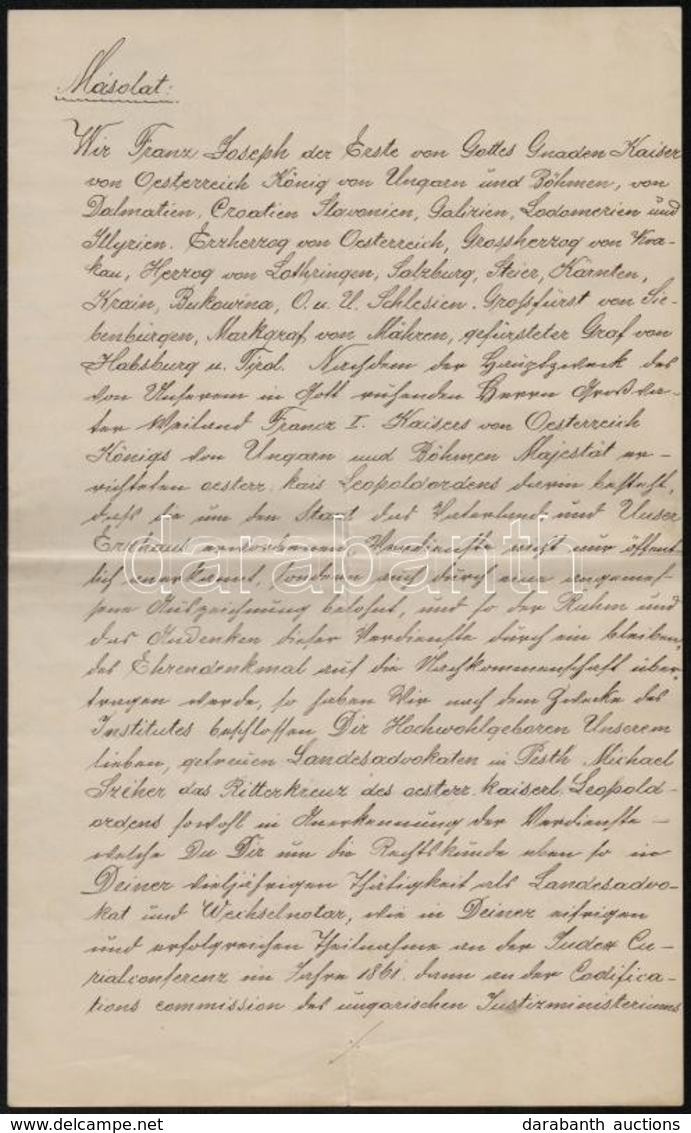 Másolat:
Wir Franz Joseph der Erste von Gottes Gnaden Kaiser
von Oesterreich König von Ungarn und Böhmen, von
Dalmatien, Croatien Slavonien, Galizien, Lodomerien und
Illyrien. Erzherzog von Oesterreich, Grossherzog von Kra-
kau, Herzog von Lothringen, Salzburg, Steier, Kärnten,
Krain, Bukowina, O. u. U. Schlesien. Großfürst von Sie-
benbürgen, Markgraf von Mähren, gefürsteter Graf von
Habsburg u. Tirol. Nachdem der Hauptzweck des
von Unserem in Gott ruhenden Herrn Großva-
ter Weiland Franz I. Kaisers von Oesterreich
Königs von Ungarn und Böhmen Majestät er-
richteten oesterr. kais Leopoldordens darin besteht,
daß die um den Staat das Vaterland und Unser
Erzhaus erworbenen Verdienste nicht nur öffent-
lich anerkannt, sondern auch durch eine angemes-
sene Auszeichnung belohnt, und so der Ruhm und
das Andenken dieser Verdienste durch ein bleiben-
des Ehrendenkmal auf die Nachkommenschaft über-
tragen werde, so haben Wir nach dem Zwecke des
Institutes beschlossen Dir Hochwohlgeboren Unserem
lieben, getreuen Landesadvokaten in Pesth Michael
Szeher das Ritterkreuz des oesterr. kaiserl. Leopold-
ordens sowohl in Anerkennung der Verdienste –
welche Du Dir um die Rechtskunde eben so in
Deiner vieljährigen Thätigkeit als Landesadvo-
kat und Wechselnotar, wie in Deiner eifrigen
und erfolgreichen Theilnahme an der Judex Cu-
rialconferenz im Jahre 1861. dann an der Codifica-
tions commission des ungarischen Justizministeriums
./.
darabanth
darabanth auctions